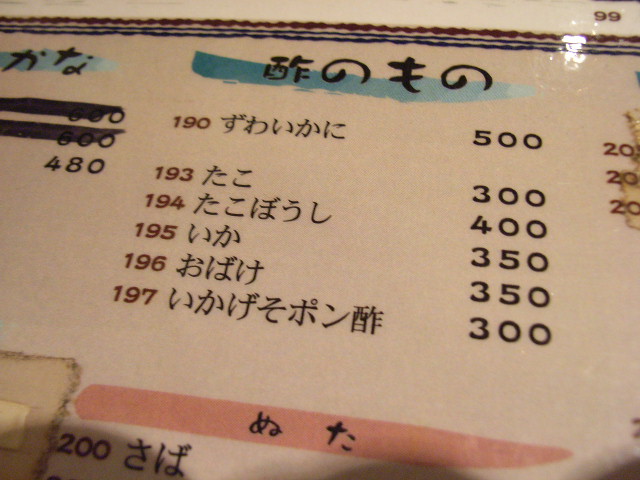 99
かな
600
600
480
酢のもの
190 ずわいかに 500
193 たこ 300
194 たこぼうし 400
195 いか 350
196 おばけ 350
197 いかげそポン酢 300
ぬた
200 さば